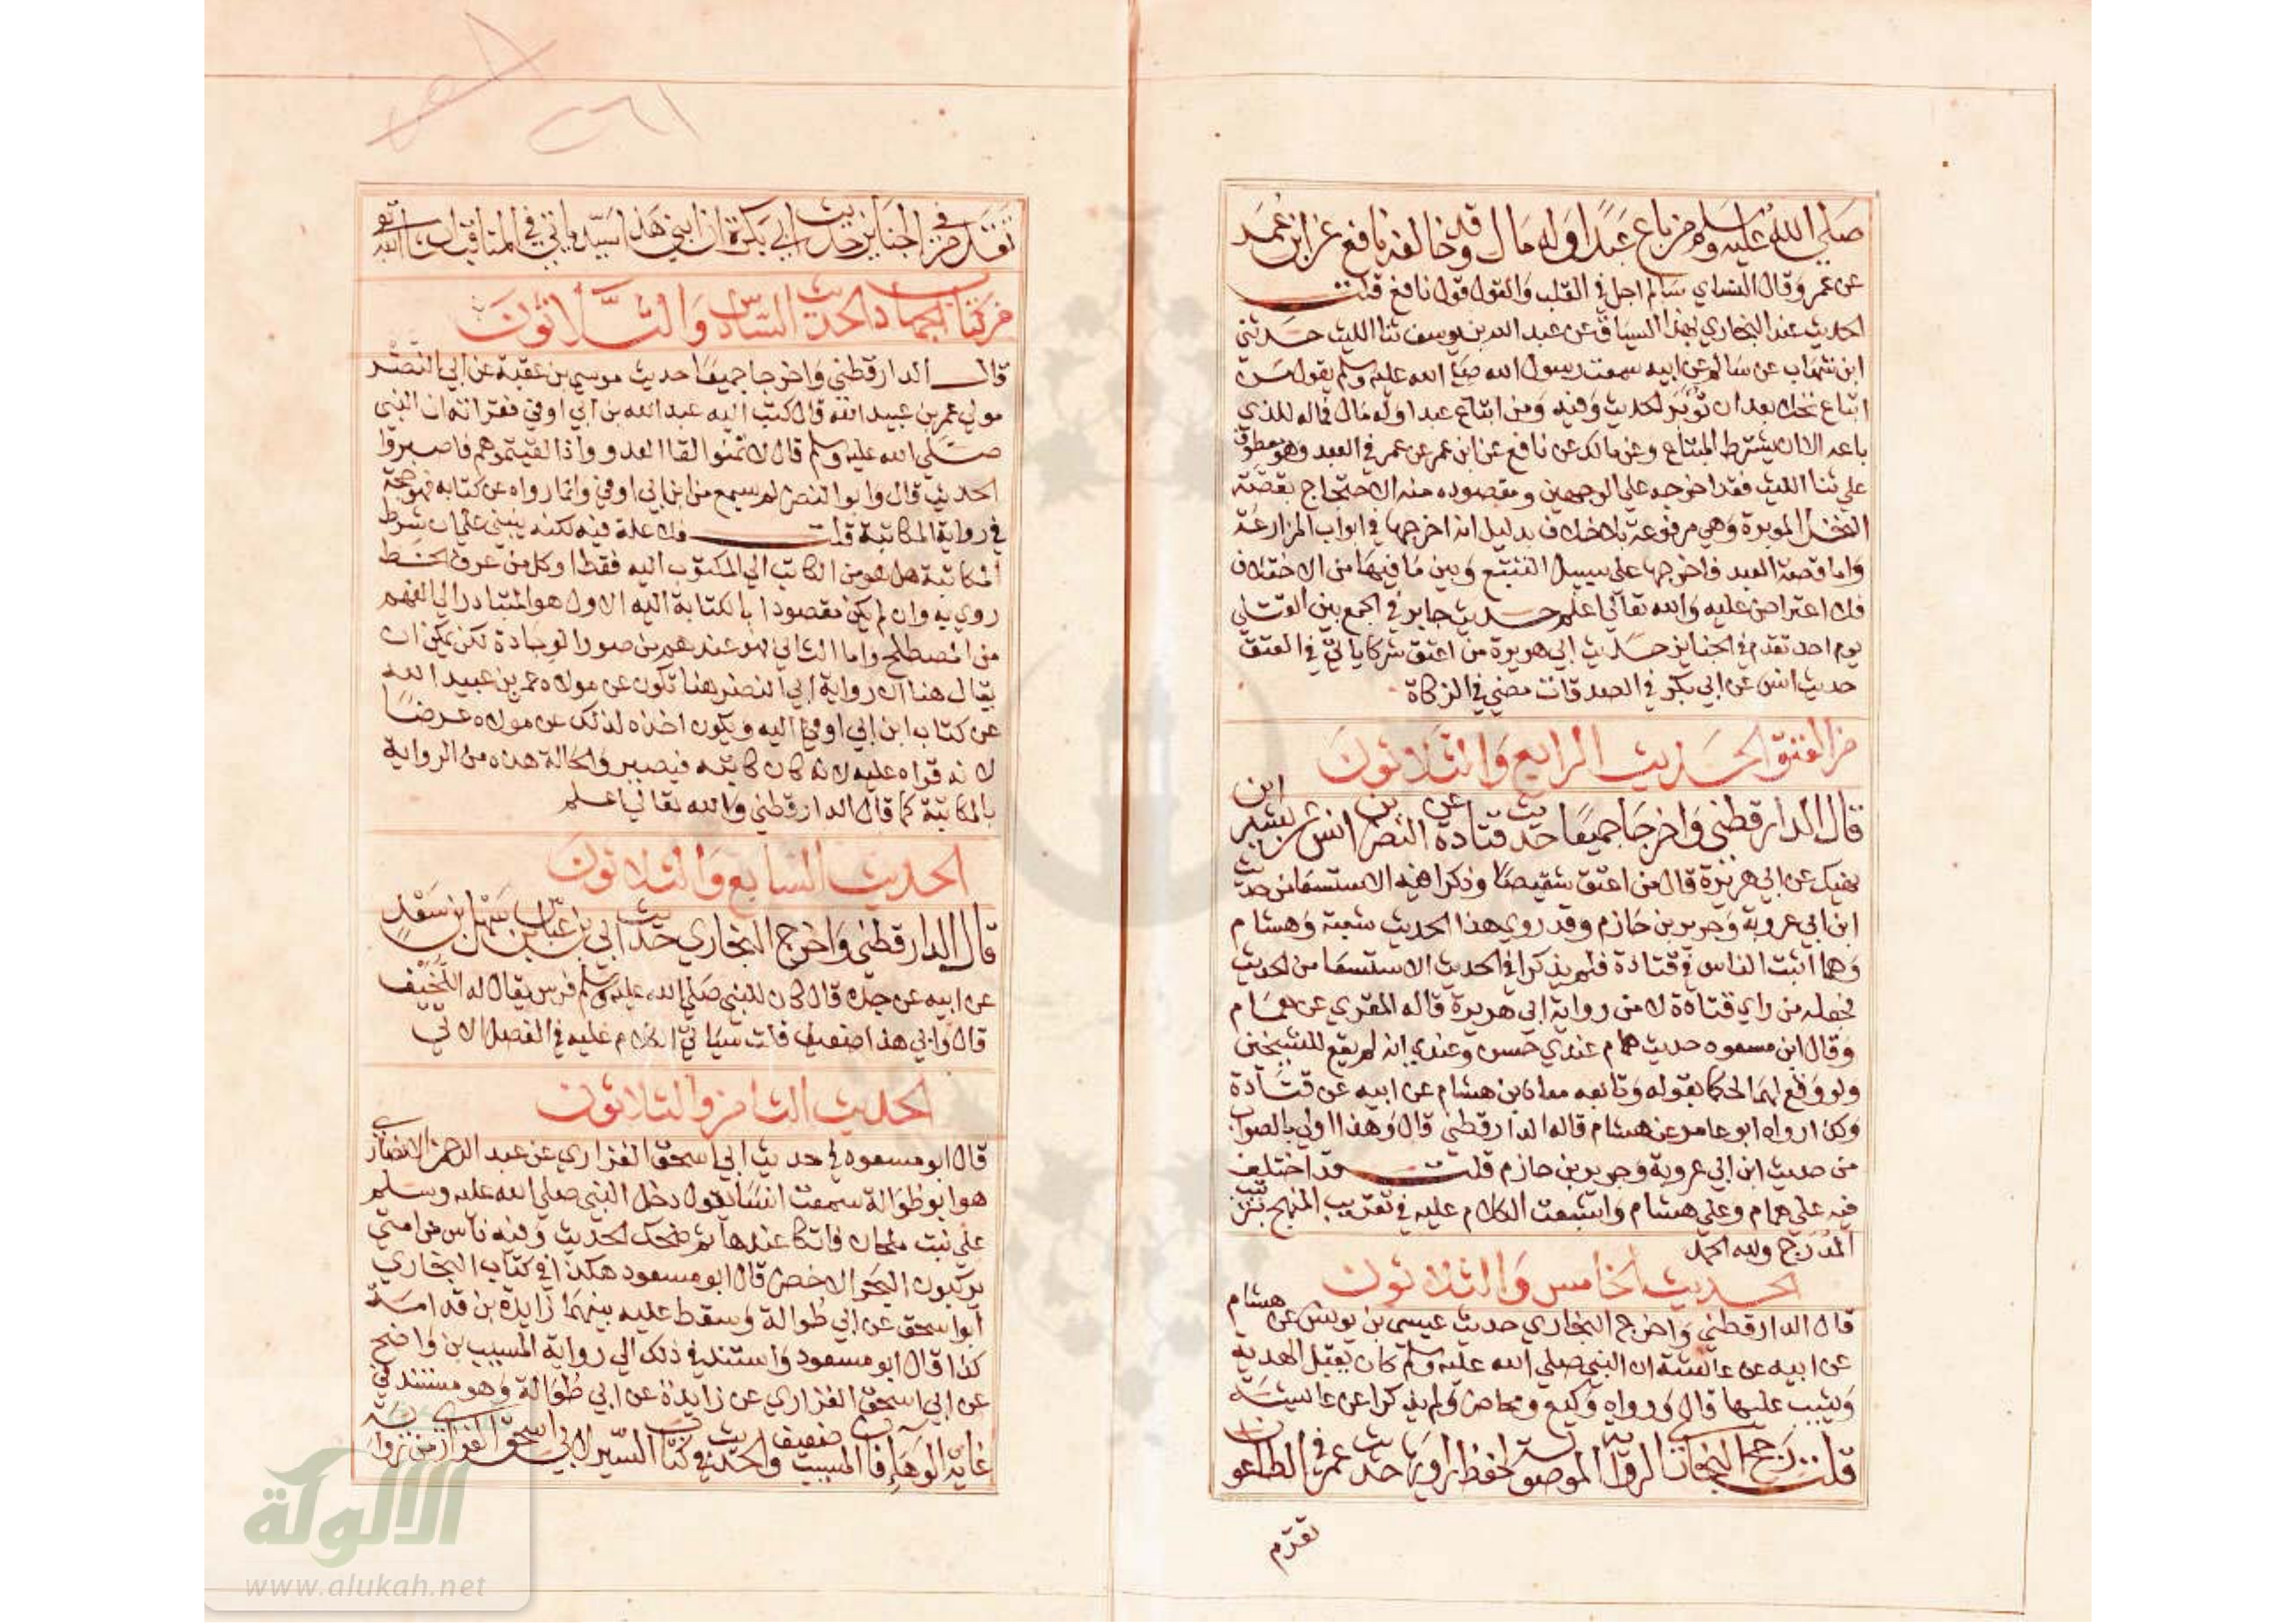 صلي الله عليه وسلم من باع عبدا وله مال قلت وقد خالفه نافع عن ابن عمر
عن عمر وقال النسايي سالم اجل في القلب والقول قول نافع قلت
الحديث عند البخاري بهذا السياق عن عبد الله بن يوسف ثنا الليث حدثني
ابن شهاب عن سالم عن ابيه سمعت رسول الله صلي الله عليه وسلم يقول من
ابتاع نخلا بعد ان تؤبر الحديث وفيه ومن ابتاع عبدا وله مال فماله للذي
باعه الا ان يشترط المبتاع وعن مالك عن نافع عن ابن عمر عن عمر في العبد وهو معطوف
علي ثنا الليث فقد اخرجه علي الوجهين ومقصوده منه الاحتجاج بقصة
النخل الموبرة وهي مرفوعة بلا خلاف بدليل انه اخرجها في ابواب المزارعة
واما قصة العبد فاخرجها علي سبيل التتبع وبين ما فيها من الاختلاف
فلا اعتراض عليه والله تعالي اعلم حديث جابر في الجمع بين القتلي
يوم احد تقدم في الجنايز حديث ابي هريرة من اعتق شركا ياتي في العتق
حديث انس عن ابي بكر في الصدقات مضي في الزكاة
من العتق الحديث الرابع والثلاثون
قال الدارقطني واخرجا جميعا حديث قتادة عن النضر بن انس عن بشير ابن
نهيك عن ابي هريرة قال من اعتق شقيصا وذكرا فيه الاستسعا من حديث
ابن ابي عروبة وجرير بن حازم وقد روي هذا الحديث شعبة وهشام
وهما اثبت الناس في قتادة فلم يذكرا في الحديث الاستسعا من الحديث
فجعله من راي قتادة لا من رواية ابي هريرة قاله المقري عن همام
وقال ابن مسعود حديث همام عندي حسن وعندي انه لم يقع للشيخين
ولو وقع لهما لحكما بقوله وتابعه معاذ بن هشام عن ابيه عن قتادة
وكذا رواه ابو عامر عن هشام قاله الدارقطني قال وهذا اولي بالصواب
من حديث ابن ابي عروبة وجرير بن حازم قلت وقد اختلف
فيه علي همام وعلي هشام واشبعت الكلام عليه في تقريب المنهج بترتيب
المدرج ولله الحمد
الحديث الخامس والثلاثون
قال الدارقطني واخرج البخاري حديث عيسي بن يونس عن هشام
عن ابيه عن عائشة ان النبي صلي الله عليه وسلم كان يقبل الهدية
ويثيب عليها قال ورواه وكيع ومحاضر ولم يذكرا عن عايشة
قلت رجح البخاري الرواية الموصولة لحفظ راويها حديث عمر في الطاعون
تقدم
تقدم في الجنايز من حديث ابي بكرة ان ابني هذا سيد ياتي في المناقب ان شا الله تعالي
من كتاب الجهاد الحديث السادس والثلاثون
قال الدارقطني واخرجا جميعا حديث موسي بن عقبة عن ابي النضر
مولي عمر بن عبيد الله قال كتب اليه عبد الله بن ابي اوفي فقراته ان النبي
صلي الله عليه وسلم قال لا تمنوا لقا العدو واذا لقيتموهم فاصبروا
الحديث قال وابو النضر لم يسمع من ابن ابي اوفي وانما رواه عن كتابه فهو حجة
في رواية المكاتبة قلت فلا علة فيه لكنه يبني علي ان شرط
المكاتبة هل هو من الكاتب الي المكتوب اليه فقط او كل من عرف الخط
روي به وان لم يكن مقصودا بالكتابة اليه الاول هو المتبادر الي الفهم
من المصطلح واما الثاني فهو عندهم من صور الوجادة لكن يمكن ان
يقال هنا ان رواية ابي النضر هنا تكون عن مولاه عمر بن عبيد الله
عن كتاب ابن ابي اوفي اليه ويكون اخذه لذلك عن مولاه عرضا
لانه قراه عليه لانه كان كاتبه فيصير والحالة هذه من الرواية
بالمكاتبة كما قال الدارقطني والله تعالي اعلم
الحديث السابع والثلاثون
قال الدارقطني واخرج البخاري حديث ابي بن عباس بن سهل بن سعد
عن ابيه عن جده قال كان للنبي صلي الله عليه وسلم فرس يقال له اللخيف
قال وابي هذا ضعيف قلت سياتي الكلام عليه في الفصل الاتي
الحديث الثامن والثلاثون
قال ابو مسعود في حديث ابي اسحق الفزاري عن عبد الرحمن الانصاري
هو ابو طوالة سمعت انسا يقول دخل النبي صلي الله عليه وسلم
علي بنت ملحان فاتكا عندها ثم ضحك الحديث وفيه ناس من امتي
يركبون البحر الاخضر قال ابو مسعود هكذا في كتاب البخاري
ابو اسحق عن ابي طوالة وسقط عليه بينهما زايدة بن قدامة
كذا قال ابو مسعود واستند في ذلك الي رواية المسيب بن واضح
عن ابي اسحق الفزاري عن زايدة عن ابي طوالة وهو مستند في
غاية الوهاء فان المسيب ضعيف والحديث في كتاب السير لابي اسحق الفزاري من رواية
الالوكة
www.alukah.net